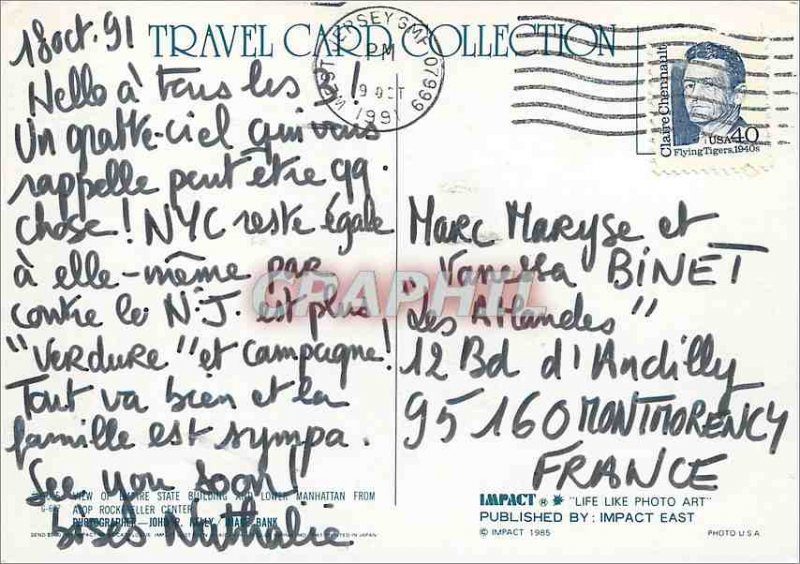 TRAVEL CARD COLLECTION
WEST JERSEY GMF 07999
PM
9 OCT
1991
Claire Chennault
USA 40
Flying Tigers, 1940s
18 oct. 91
Hello à tous les !
Un gratte-ciel qui vous
rappelle peut être qq.
chose! NYC reste égale
à elle-même par
contre le N.J. est plus
"verdure" et campagne!
Tout va bien et la
famille est sympa.
See you soon!
Bises Nathalie
Marc Maryse et
Vanessa BINET
"Les Atlandes"
12 Bd d'Andilly
95160 MONTMORENCY
FRANCE
VIEW OF EMPIRE STATE BUILDING AND LOWER MANHATTAN FROM
ATOP ROCKEFELLER CENTER
PHOTOGRAPHER—JOHN R. / IMAGE BANK
IMPACT ® "LIFE LIKE PHOTO ART"
PUBLISHED BY: IMPACT EAST
© IMPACT 1985
PHOTO U.S.A.
PRINTED IN JAPAN